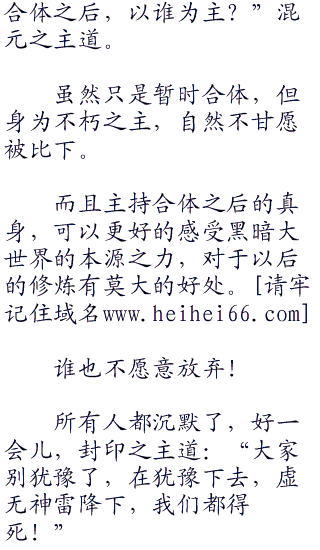 合体之后，以谁为主？”混
元之主道。
虽然只是暂时合体，但
身为不朽之主，自然不甘愿
被比下。
而且主持合体之后的真
身，可以更好的感受黑暗大
世界的本源之力，对于以后
的修炼有莫大的好处。[请牢
记住域名www.heihei66.com]
谁也不愿意放弃！
所有人都沉默了，好一
会儿，封印之主道：“大家
别犹豫了，在犹豫下去，虚
无神雷降下，我们都得
死！”